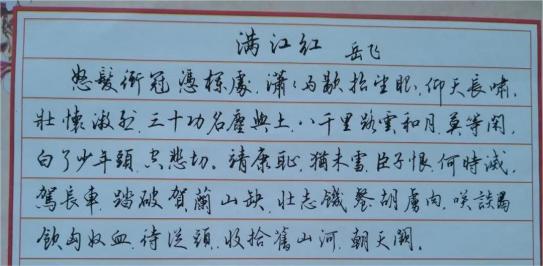 满江红 岳飞
怒髮衝冠憑欄處.瀟〻雨歇抬望眼.仰天長嘯.
壯懷激烈.三十功名塵與土.八千里路雲和月.莫等閑.
白了少年頭.空悲切.靖康恥.猶未雪.臣子恨.何時滅.
駕長車.踏破賀蘭山缺.壯志饑餐胡虜肉.咲談渴
飲匈奴血.待從頭.收拾舊山河.朝天闕.